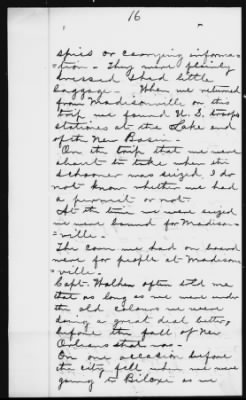 16
spies or carrying informa-
tion. They were plainly
dressed & had little
baggage. When we returned
from Madisonville on this
trip we found U. S. troops
stationed at the Lake end
of the New Basin.
On the trip that we were
about to take when the
schooner was seized, I do
not know whether we had
a permit or not.
At the time we were seized
we were bound for Madison-
ville.
The corn we had on board
were for people at Madison-
ville.
Capt. Walker often told me
that as long as we were under
the old colours we were
doing a great deal better,
before the fall of New
Orleans that was.
On one occasion before
the city fell when we were
going to Biloxi as we